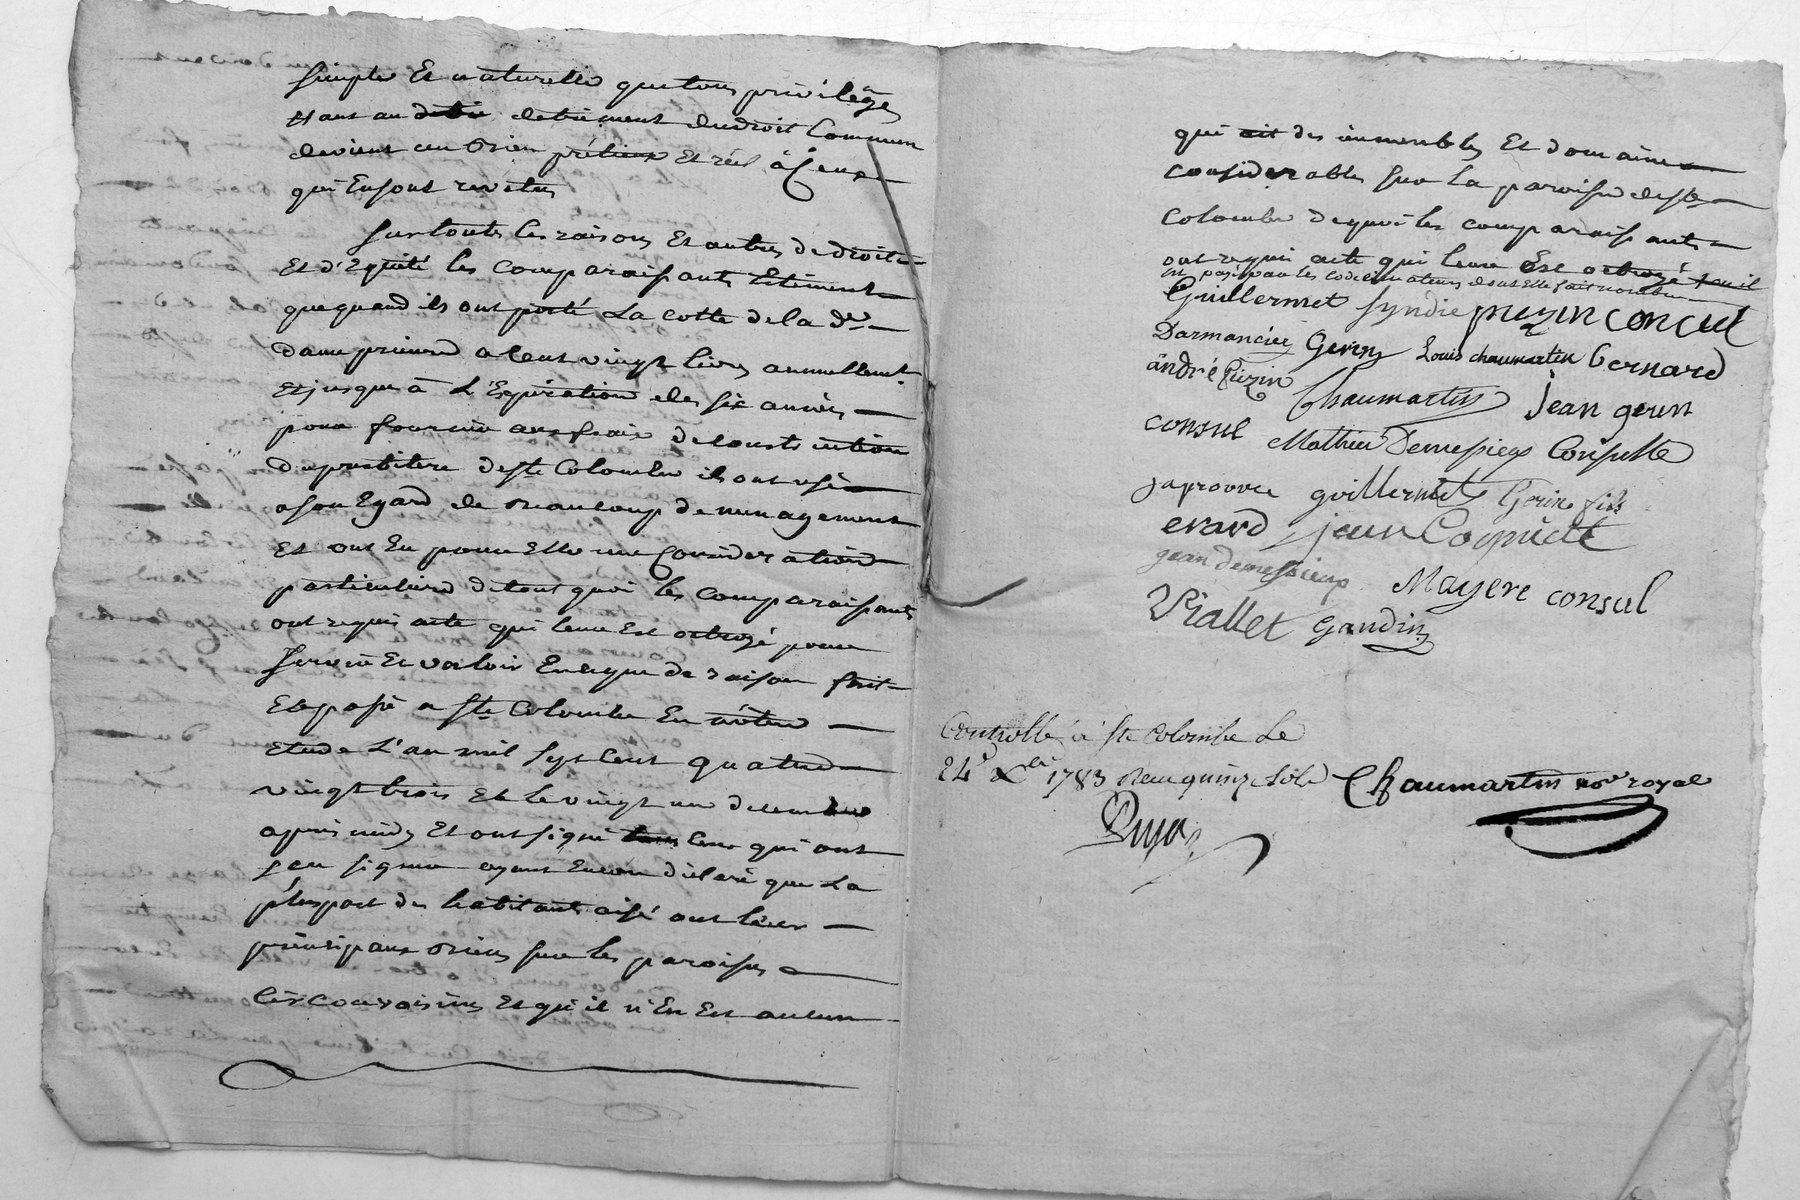 simple Et naturelle que tous privilege
etant au detri detriment du droit Commun
devient un Bien prétieux Et réel à Ceux
qui En sont revetus
sur toutes les raisons Et autres de droit
Et d'Equité les comparaissants Estiment
que quand ils ont porté La cotte de la de
dame prieure a Cent vingt livres annuellement
Et jusques à L'Expiration des six années
pour fournir aux frais de Construction
du presbitere de ste Colombe ils ont usé
a son Egard de Beaucoup de menagement
Et ont Eu pour Elle une Consideration
particuliere de tout quoi les comparaissants
ont requis acte qui leur Est octroyé pour
servir Et valoir En ce que de raison fait
Et passé a ste Colombe En nôtre
Etude L'an mil sept Cent quatre
vingt trois Et le vingt un decembre
apres midy Et ont signé tous Ceux qui ont
sçu signer ayant Encore déclaré que La
pluspart des habitants aisé ont leur
principaux Biens sur les paroisses
Circonvoisines Et qu'il n'En Est aucun
qui ait des immeubles Et domaines
considerables sur la paroisse de ste
Colombe de quoi les comparaissants
ont requis acte qui leur Est octroyé
Guillermet syndic puzin concul
Darmancier Gerin Louis chaumartin bernard
andré puzin Chaumartin jean gerin
consul Mathieu Demesieux Consulte
japrouve guillermet Gerin fils
evard jean Coponat
jean demessieux Mayere consul
Viallet Gandin
Controllé à ste Colombe Le
24 Xbre 1783 Reçu quinze sols Chaumartin nore royal